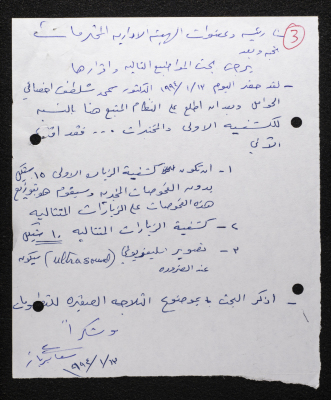 ③
رئيسة وعضوات الهيئة الادارية المحترمات
تحية وبعد
يرجى بحث المواضيع التالية واقرارها
- لقد حضر اليوم ١٩٩٤/١/١٣ الدكتور محمد شلطف اخصائي
الحوامل وبعد ان اطلع على النظام المتبع هنا بالنسبة
للكشفية الاولى والمختبرات ... فقد اقترح
الآتي
١- ان تكون كشفية الزيارة الاولى ١٥ شيكل
بدون الفحوصات المخبرية وسيقوم هو بتوزيع
هذه الفحوصات على الزيارات المتتالية
٢- كشفية الزيارات المتتالية ١٠ شيكل
٣- تصوير تلفزيوني (ultrasound) سيكون
عند الضرورة
- اذكر البحث بموضوع الثلاجة الصغيرة
وشكراً
١٩٩٤/١/١٣